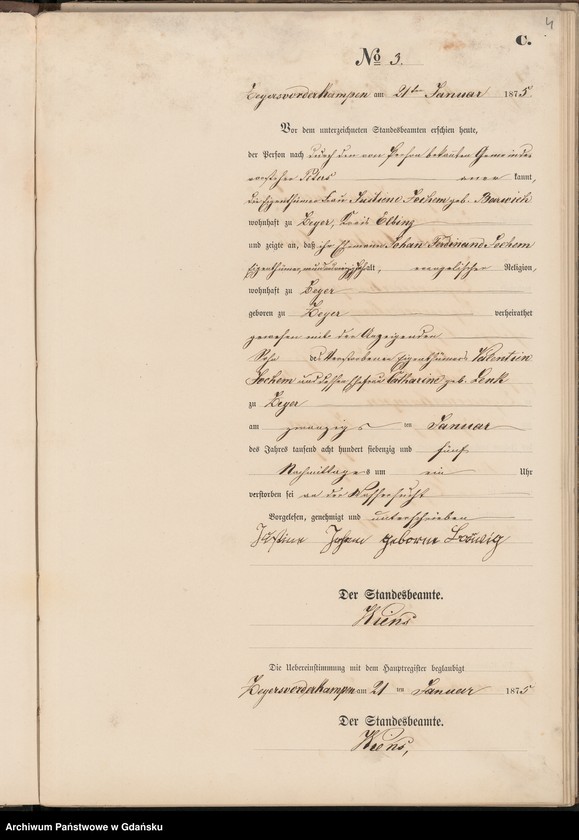 4
C.
No 3.
Zeyersvorderkampen am 21ten Januar 1875
Vor dem unterzeichneten Standesbeamten erschien heute,
der Person nach durch den von Person bekannten Gemeinde
vorsteher Peters kannt,
die Eigenthümer Frau Justine Jochem geb. Barwich
wohnhaft zu Zeyer, Kreis Elbing
und zeigte an, daß ihr Ehemann Johan Ferdinand Jochem
Eigenthümer, alt, evangelischer Religion,
wohnhaft zu Zeyer
geboren zu Zeyer verheirathet
gewesen mit der Anzeigenden
Sohn des Verstorbenen Eigenthümers Valentin
Jochem und dessen Ehefrau Catharine geb. Lenk
zu Zeyer
am zwanzigs ten Januar
des Jahres tausend acht hundert siebenzig und fünf
Nachmittags um ein Uhr
verstorben sei an der Wassersucht
Vorgelesen, genehmigt und unterschrieben
Justine geborne
Der Standesbeamte.
Wiens
Die Uebereinstimmung mit dem Hauptregister beglaubigt
Zeyersvorderkampen am 21 ten Januar 1875
Der Standesbeamte.
Wiens,
Archiwum Państwowe w Gdańsku